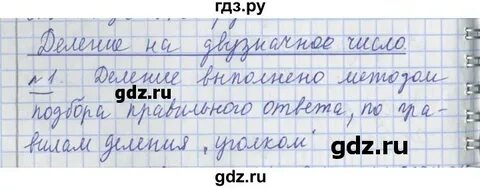 гдз.ру
Деление на двузначное число
№1. Деление выполнено методом
подбора правильного ответа, по пра-
вилам деления "уголком"
gdz.ru
gdz.ru
gdz.ru
gdz.ru